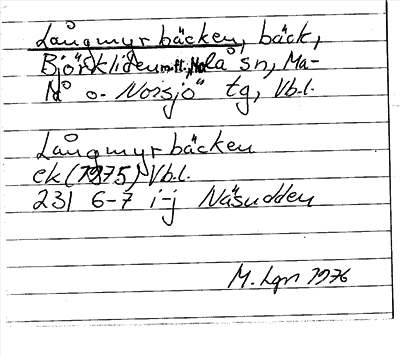 Långmyrbäcken, bäck,
Björkliden m.fl., Malå sn, Ma-
lå o. Norsjö tg, Vb.l.
Långmyrbäcken
ek (1975) Vb.l.
231 6-7 i-j Näsudden
M. Lgn 1976